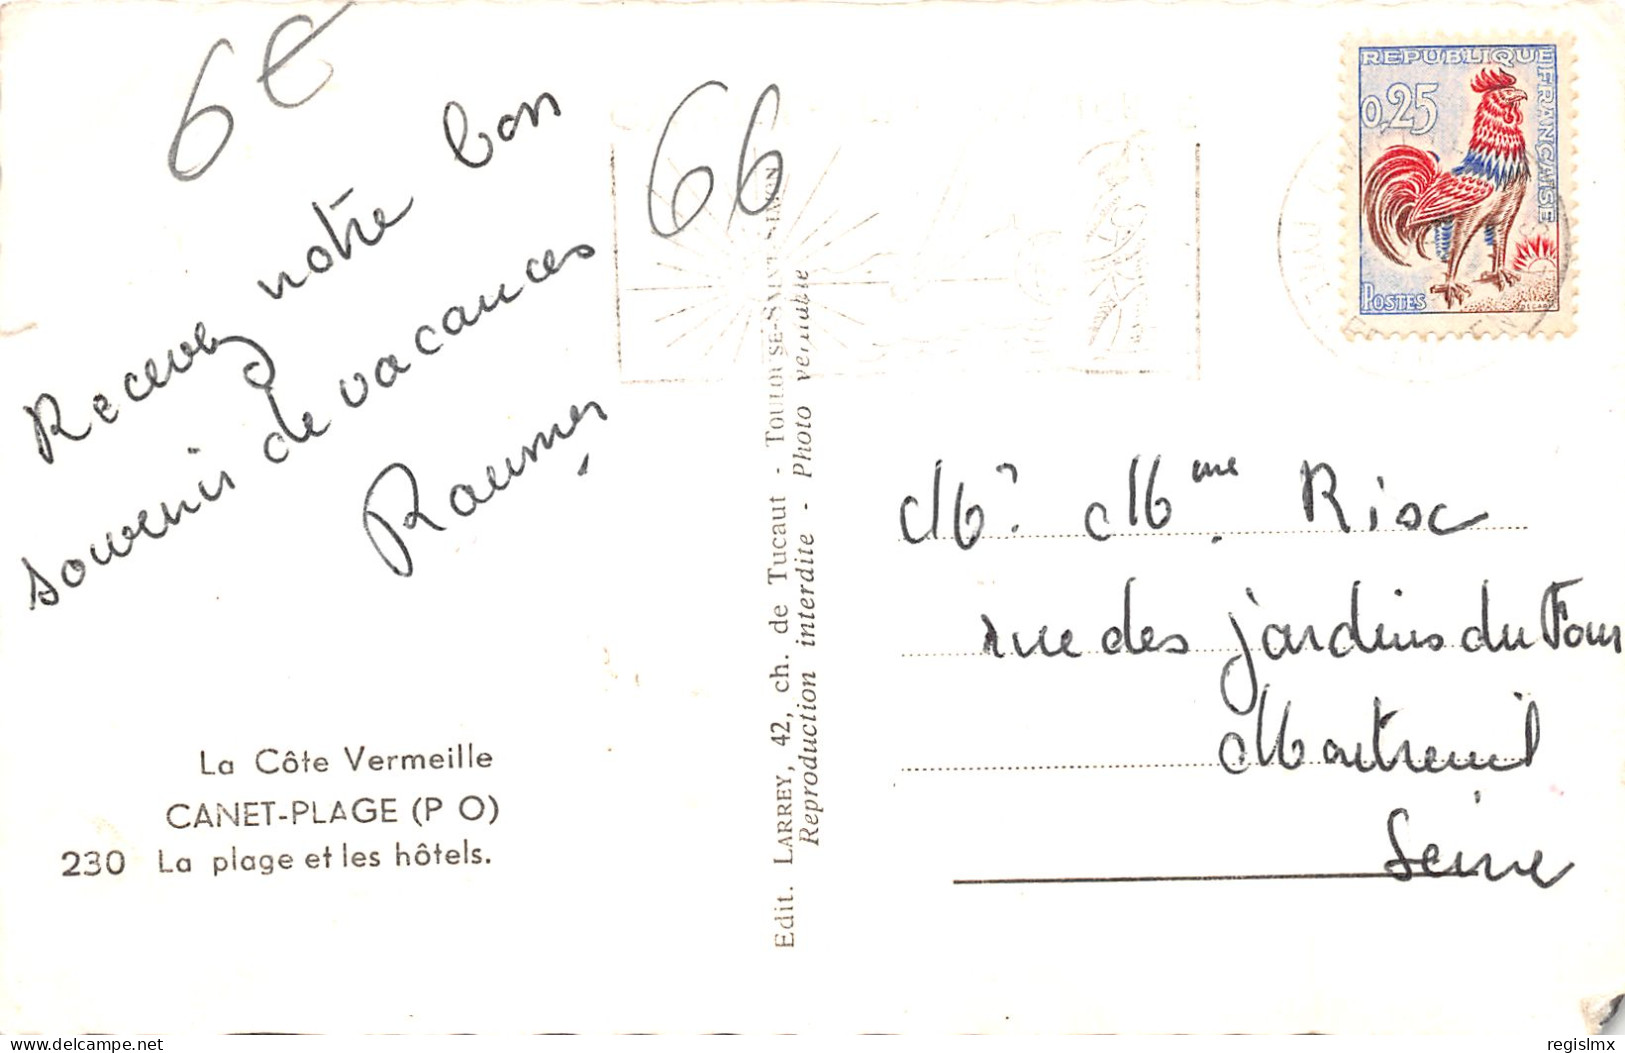 6€
66
Recevez notre bon
souvenir de vacances
La Côte Vermeille
CANET-PLAGE (P O)
230 La plage et les hôtels.
Edit. LARREY, 42, ch. de Tucaut - TOULOUSE-SAINT-SIMON
Reproduction interdite - Photo véritable
REPUBLIQUE FRANÇAISE
0,25
POSTES
DECARIS
Mr. Mme Risc
rue des jardins du Four
Montreuil
Seine
delcampe.net
regislmx